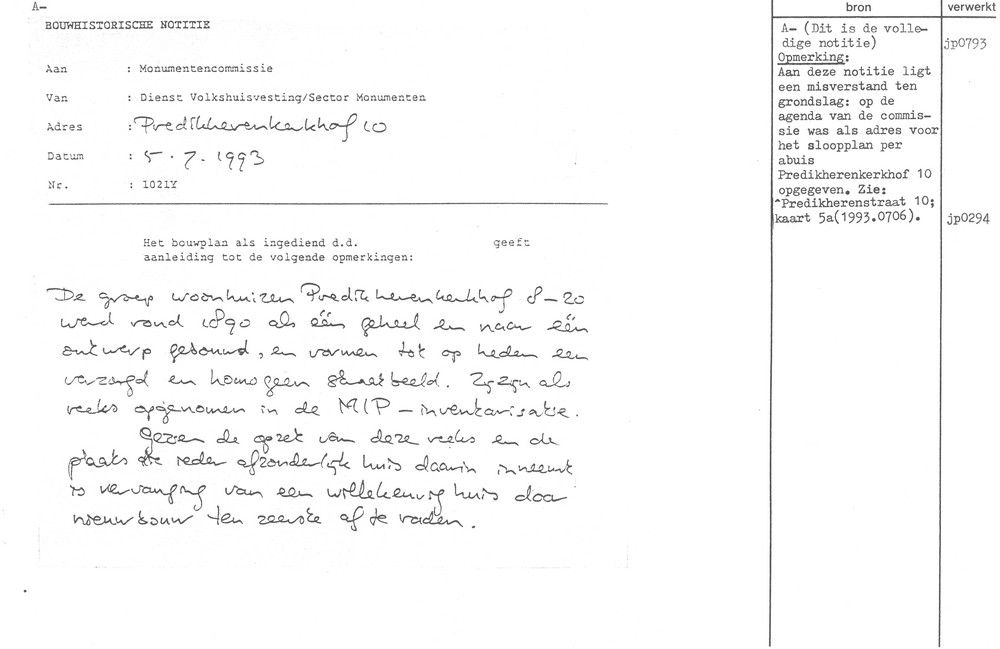 A-
BOUWHISTORISCHE NOTITIE
Aan : Monumentencommissie
Van : Dienst Volkshuisvesting/Sector Monumenten
Adres : Predikherenkerkhof 10
Datum : 5.7.1993
Nr. : 1021Y
Het bouwplan als ingediend d.d. geeft
aanleiding tot de volgende opmerkingen:
De groep woonhuizen Predikherenkerkhof 8-20
werd rond 1890 als één geheel en naar één
ontwerp gebouwd, en vormen tot op heden een
verzorgd en homogeen straatbeeld. Zij zijn als
reeks opgenomen in de MIP-inventarisatie.
Gezien de opzet van deze reeks en de
plaats die ieder afzonderlijk huis daarin inneemt
is vervanging van een willekeurig huis door
nieuwbouw ten zeerste af te raden.
bron verwerkt
A- (Dit is de volle-
dige notitie) jp0793
Opmerking:
Aan deze notitie ligt
een misverstand ten
grondslag: op de
agenda van de commis-
sie was als adres voor
het sloopplan per
abuis
Predikherenkerkhof 10
opgegeven. Zie:
^Predikherenstraat 10;
kaart 5a(1993.0706). jp0294